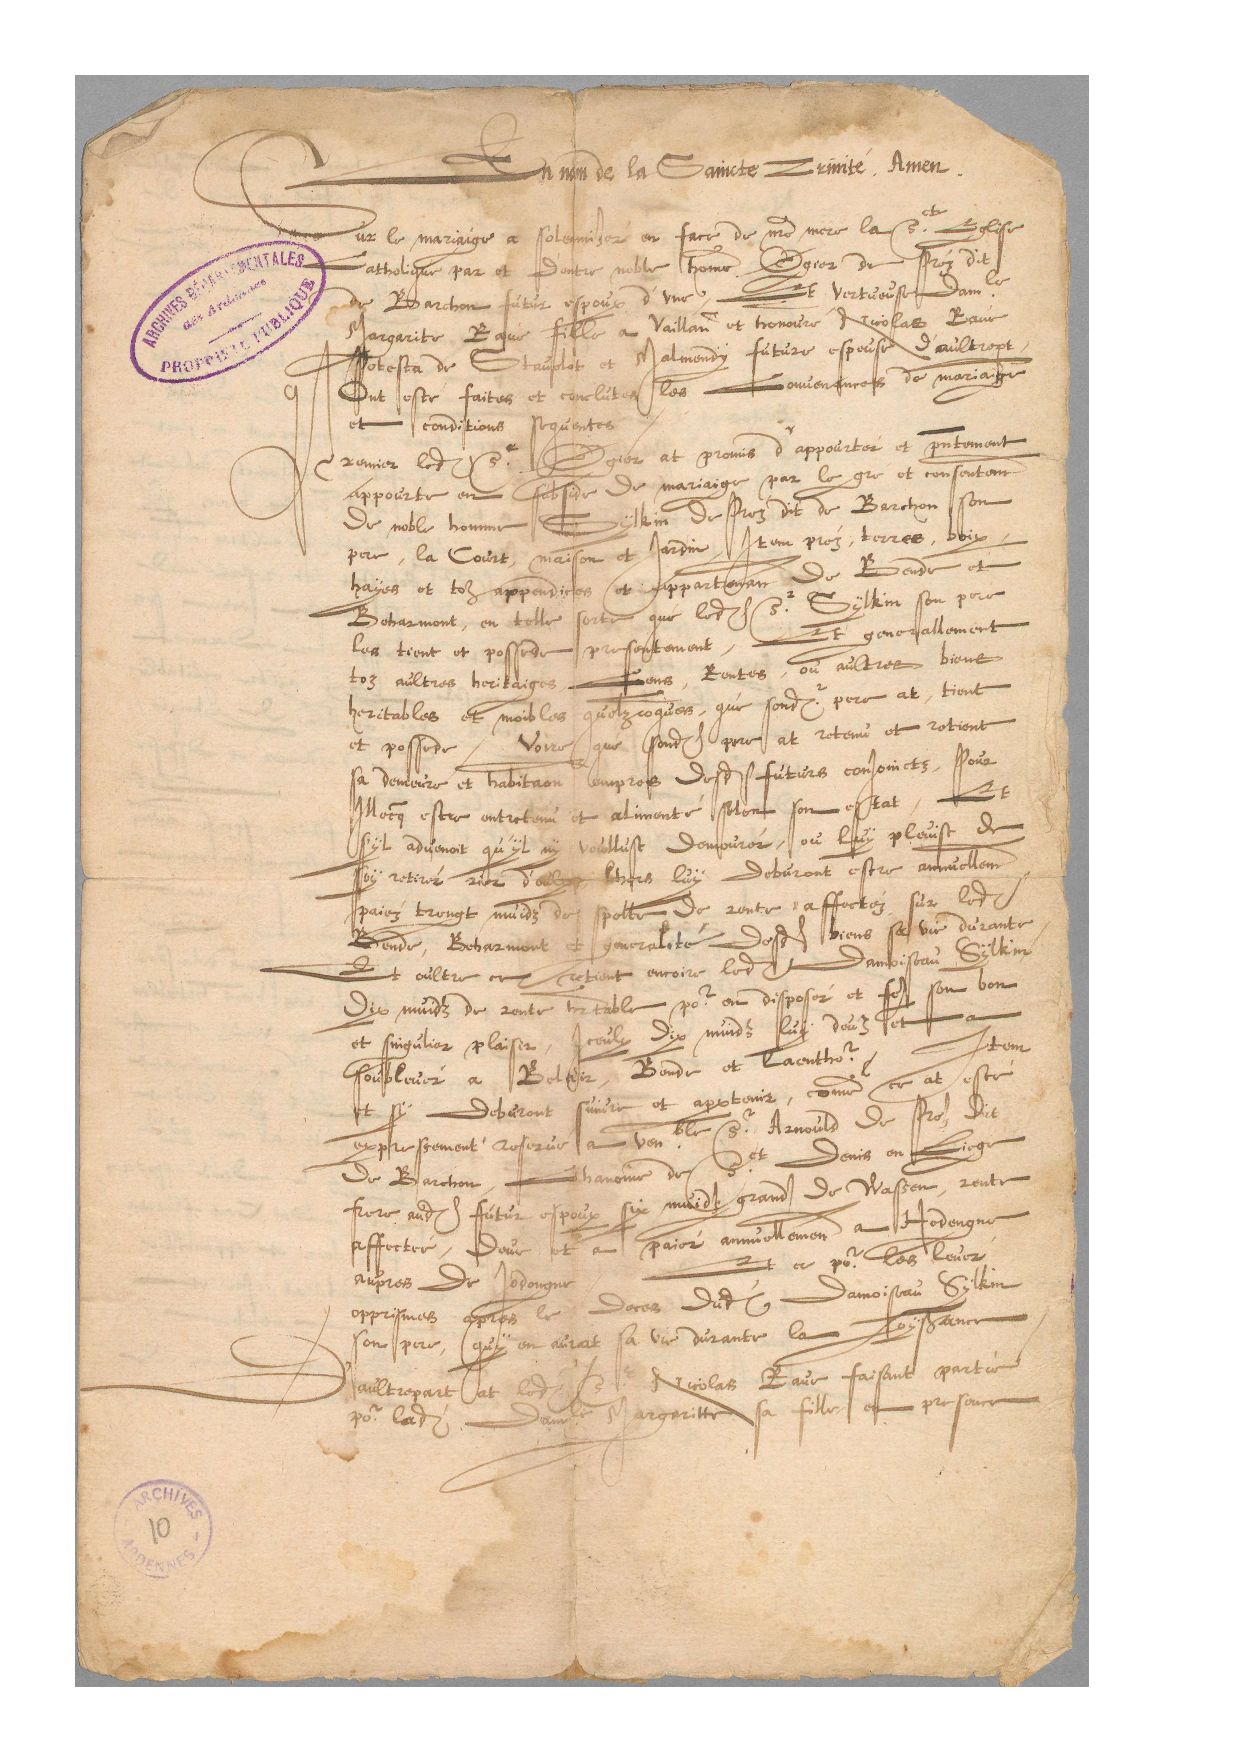 En nom de la Saincte Trinité. Amen.
Sur le mariaige a solemnizer en face de nre mere la S.cte Eglise
Catholique par et d'entre noble home Ogier de Prez dit
de Barchon futur espoux d'vne, Et vertueuse Dam.le
Margarite Raue fille a Vaillan et honoure Nicolas Raue
Potesta de Stauelot et Malmendy future espouse d'aultrept,
Ont esté faites et conclutes les Conuenances de mariaige
et conditions sequentes
Premier led S.r Ogier at promis d'appourter et pntement
appourte en subside de mariaige par le gre et consentem
de noble homme Gylkin de Prez dit de Barchon son
pere, la Court, maison et Jardin, Item prez, terres, boix,
hayes et toz appendices et appartenan de Bende et
Beharmont, en telle sorte que led S.r Gylkin son pere
les tient et possede presentement, Et generallement
toz aultres heritaiges Cens, Rentes, ou aultres biens
heritables et moibles quelzcoques, que sond. pere at, tient
et possede, Voire que sond pere at retenu et retient
sa demeure et habitaon empres desd futurs conjoinctz, Pour
Illecq estre entretenu et alimenté selon son estat, Et
s'yl aduenoit qu'yl ny voellust demourer, ou luy pleuist de
soy retirer luy deburont estre annuellem
paiez trengt muidz de spelte de rente affectez sur led
Bende, Beharmont et generalité desd biens sa vie durante
Et oultre ce retient encoire led Damoiseau Gylkin
dix muidz de rente po.r en disposer et son bon
et singulier plaisir, Iceulx dix muidz luy deuz et a
soubleuer a Bende et Item
et sy deburont suiure et apptenir, come ce at esté
expressement reserué a ven.ble S.r Arnould de Prez dit
de Barchon, Chanoine de S.ct Denis en Liege
frere aud futur espoux six muidz grand de Wassen, rente
affectée, deue et a paier annuellemen a Hedengne
aupres de Jodongne, Et ce po.r les leuer
opprismes apres le deces dud. Damoiseau Gylkin
son pere, quy en aurat sa vie durante la Joyssance
D'aultrepart at led S.r Nicolas Raue faisant partie
po.r lad. Dam.le Margaritte sa fille en presence
ARCHIVES DÉPARTEMENTALES
des Ardennes
PROPRIÉTÉ PUBLIQUE
ARCHIVES
10
ARDENNES